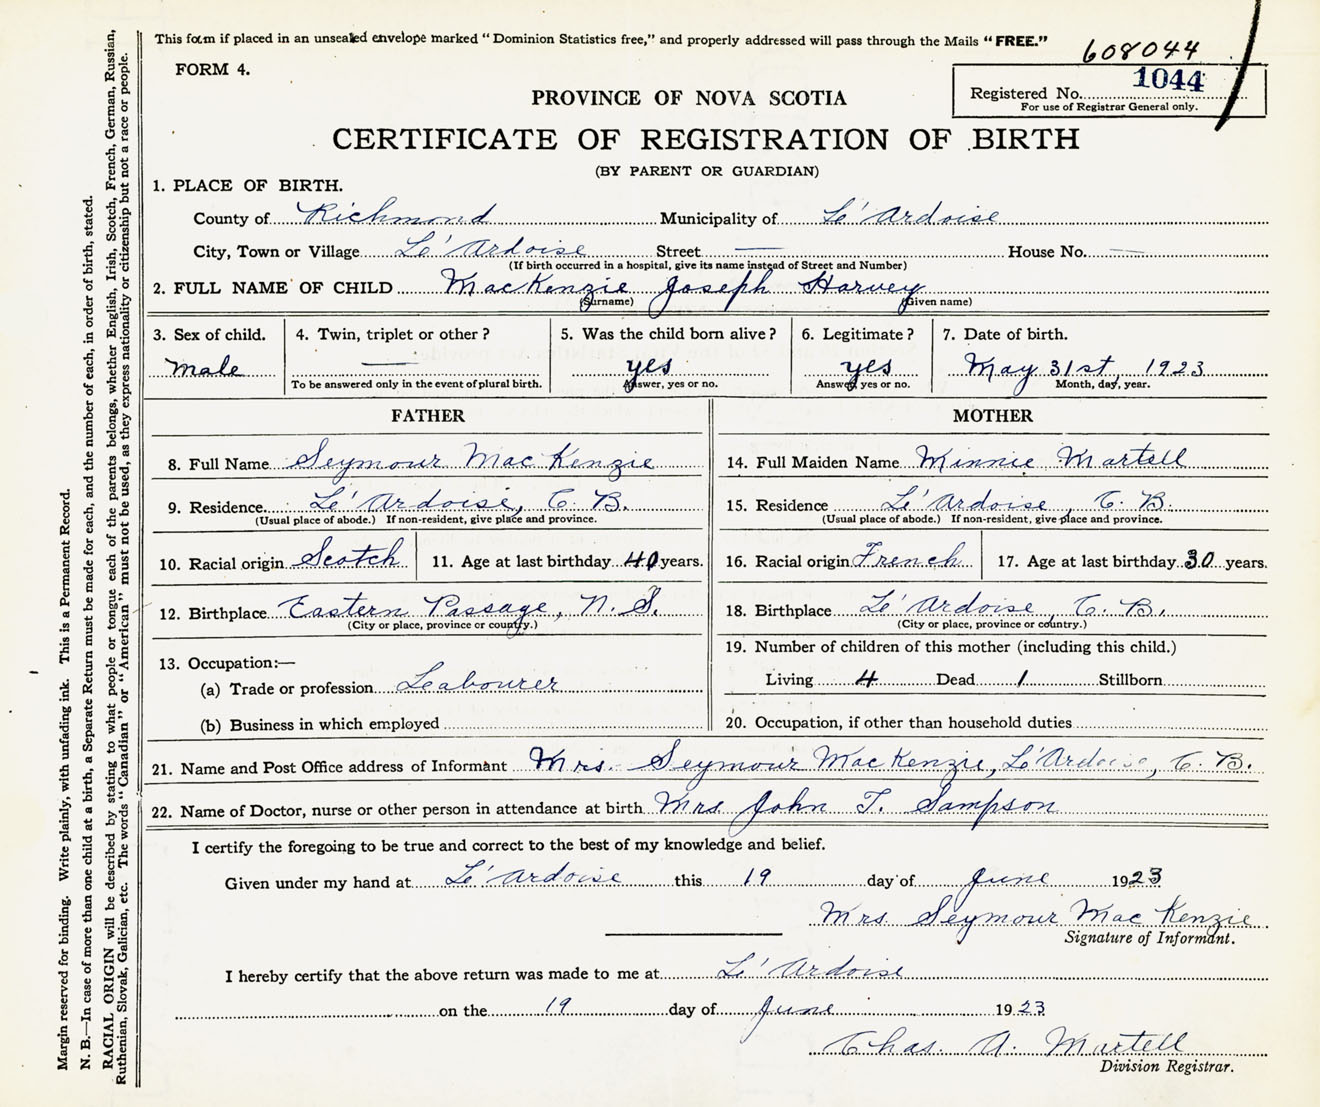 This form if placed in an unsealed envelope marked "Dominion Statistics free," and properly addressed will pass through the Mails "FREE."
608044
FORM 4.
Registered No. 1044
For use of Registrar General only.
PROVINCE OF NOVA SCOTIA
CERTIFICATE OF REGISTRATION OF BIRTH
(BY PARENT OR GUARDIAN)
1. PLACE OF BIRTH.
County of Richmond Municipality of Le' Ardoise
City, Town or Village Le' Ardoise Street — House No. —
(If birth occurred in a hospital, give its name instead of Street and Number)
2. FULL NAME OF CHILD MacKenzie Joseph Harvey
(Surname) (Given name)
3. Sex of child. 4. Twin, triplet or other? 5. Was the child born alive? 6. Legitimate? 7. Date of birth.
Male — yes yes May 31st, 1923
To be answered only in the event of plural birth. Answer, yes or no. Answer, yes or no. Month, day, year.
FATHER MOTHER
8. Full Name Seymour Mac Kenzie 14. Full Maiden Name Minnie Martell
9. Residence Le' Ardoise, C. B. 15. Residence Le' Ardoise, C. B.
(Usual place of abode.) If non-resident, give place and province. (Usual place of abode.) If non-resident, give place and province.
10. Racial origin Scotch 11. Age at last birthday 40 years. 16. Racial origin French 17. Age at last birthday 30 years.
12. Birthplace Eastern Passage, N. S. 18. Birthplace Le' Ardoise C. B.
(City or place, province or country.) (City or place, province or country.)
19. Number of children of this mother (including this child.)
13. Occupation:—
(a) Trade or profession Leabourer Living 4 Dead 1 Stillborn
(b) Business in which employed 20. Occupation, if other than household duties
21. Name and Post Office address of Informant Mrs. Seymour MacKenzie, Le' Ardoise, C. B.
22. Name of Doctor, nurse or other person in attendance at birth Mrs John T. Sampson
I certify the foregoing to be true and correct to the best of my knowledge and belief.
Given under my hand at Le' Ardoise this 19 day of June 1923
Mrs. Seymour Mac Kenzie
Signature of Informant.
I hereby certify that the above return was made to me at Le' Ardoise
on the 19 day of June 1923
Chas. A. Martell
Division Registrar.
Margin reserved for binding. Write plainly, with unfading ink. This is a Permanent Record.
N. B.—In case of more than one child at a birth, a Separate Return must be made for each, and the number of each, in order of birth, stated.
RACIAL ORIGIN will be described by stating to what people or tongue each of the parents belongs, whether English, Irish, Scotch, French, German, Russian,
Ruthenian, Slovak, Galician, etc. The words "Canadian" or "American" must not be used, as they express nationality or citizenship but not a race or people.